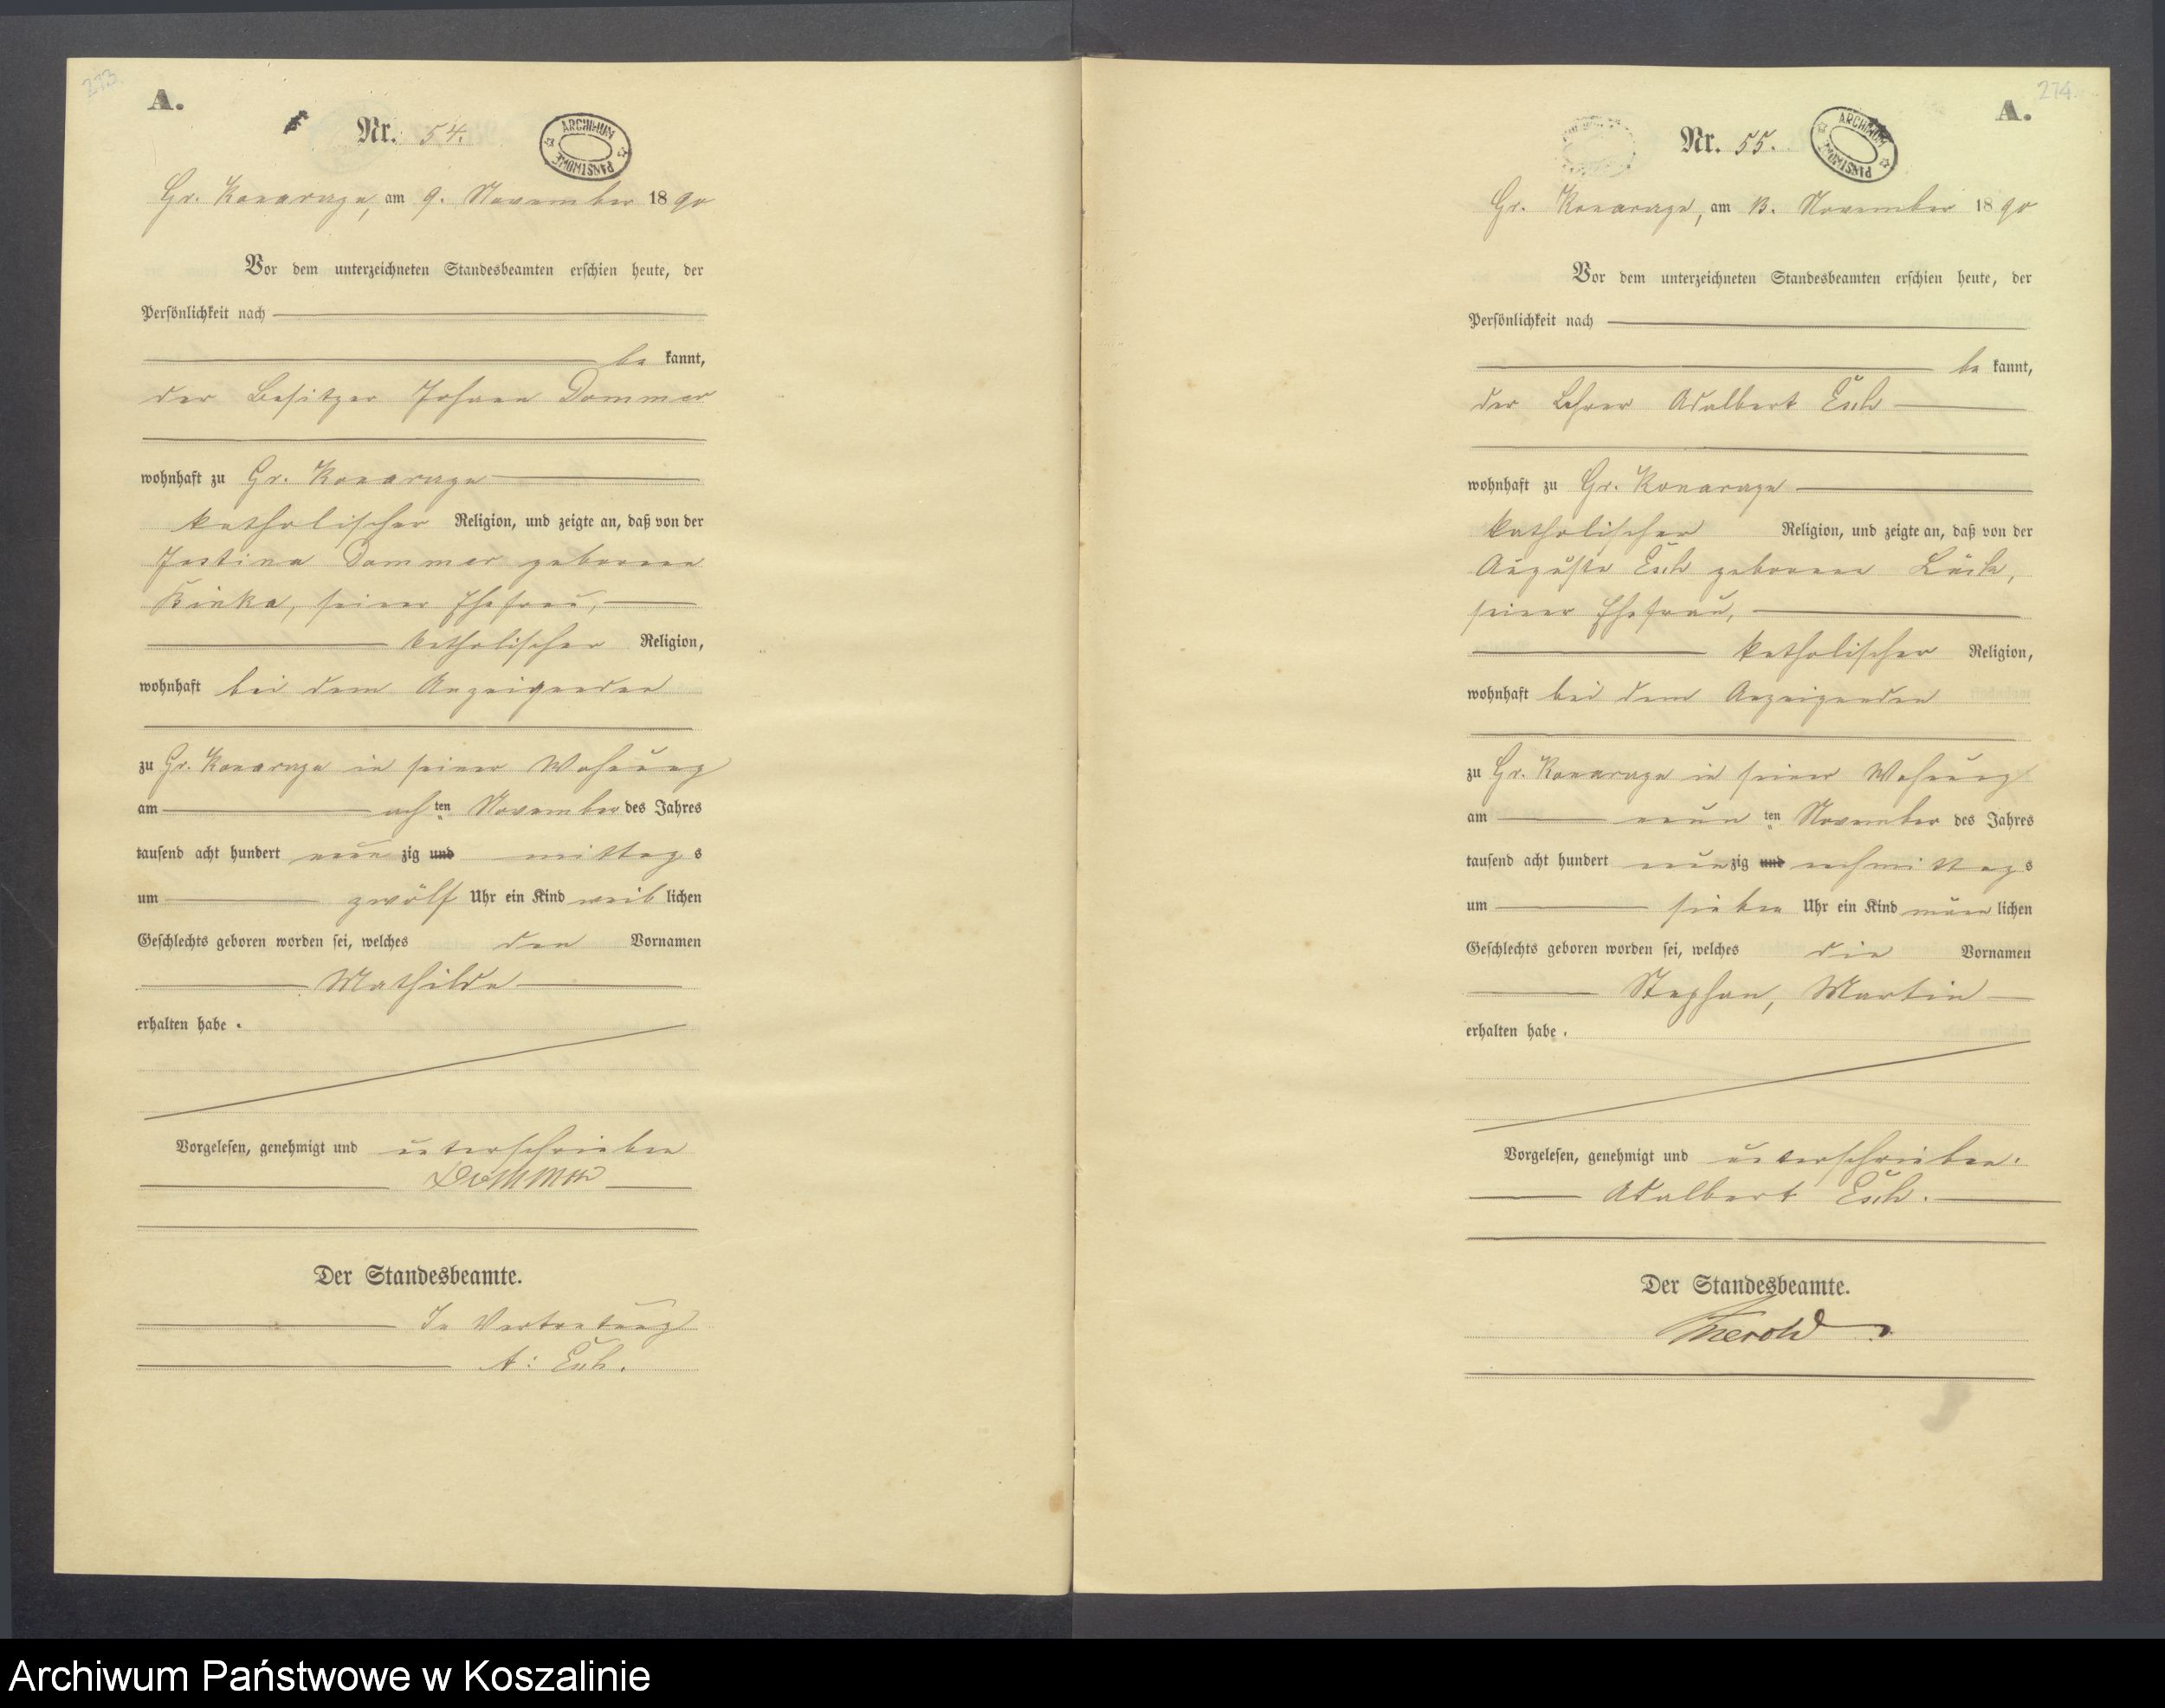 273.
A.
Nr. 54.
ARCHIWUM PAŃSTWOWE
Gr. Konarczyn, am 9. November 1890
Vor dem unterzeichneten Standesbeamten erschien heute, der
Persönlichkeit nach
be kannt,
der Besitzer Johann Dommer
wohnhaft zu Gr. Konarczyn
katholischer Religion, und zeigte an, daß von der
Justina Dommer geborenen
Kinka, seiner Ehefrau,
katholischer Religion,
wohnhaft bei dem Anzeigenden
zu Gr. Konarczyn in seiner Wohnung
am achten November des Jahres
tausend acht hundert neunzig und mittags
um zwölf Uhr ein Kind weiblichen
Geschlechts geboren worden sei, welches den Vornamen
Mathilde
erhalten habe.
Vorgelesen, genehmigt und unterschrieben
Dommer
Der Standesbeamte.
In Vertretung
A. Esch.
274.
A.
Nr. 55.
ARCHIWUM PAŃSTWOWE
Gr. Konarczyn, am 13. November 1890
Vor dem unterzeichneten Standesbeamten erschien heute, der
Persönlichkeit nach
be kannt,
der Lehrer Adalbert
wohnhaft zu Gr. Konarczyn
katholischer Religion, und zeigte an, daß von der
Auguste geborenen Lück,
seiner Ehefrau,
katholischer Religion,
wohnhaft bei dem Anzeigenden
zu Gr. Konarczyn in seiner Wohnung
am neunten November des Jahres
tausend acht hundert neunzig und nachmittags
um sieben Uhr ein Kind männlichen
Geschlechts geboren worden sei, welches die Vornamen
Stephan, Martin
erhalten habe.
Vorgelesen, genehmigt und unterschrieben.
Adalbert
Der Standesbeamte.
Archiwum Państwowe w Koszalinie